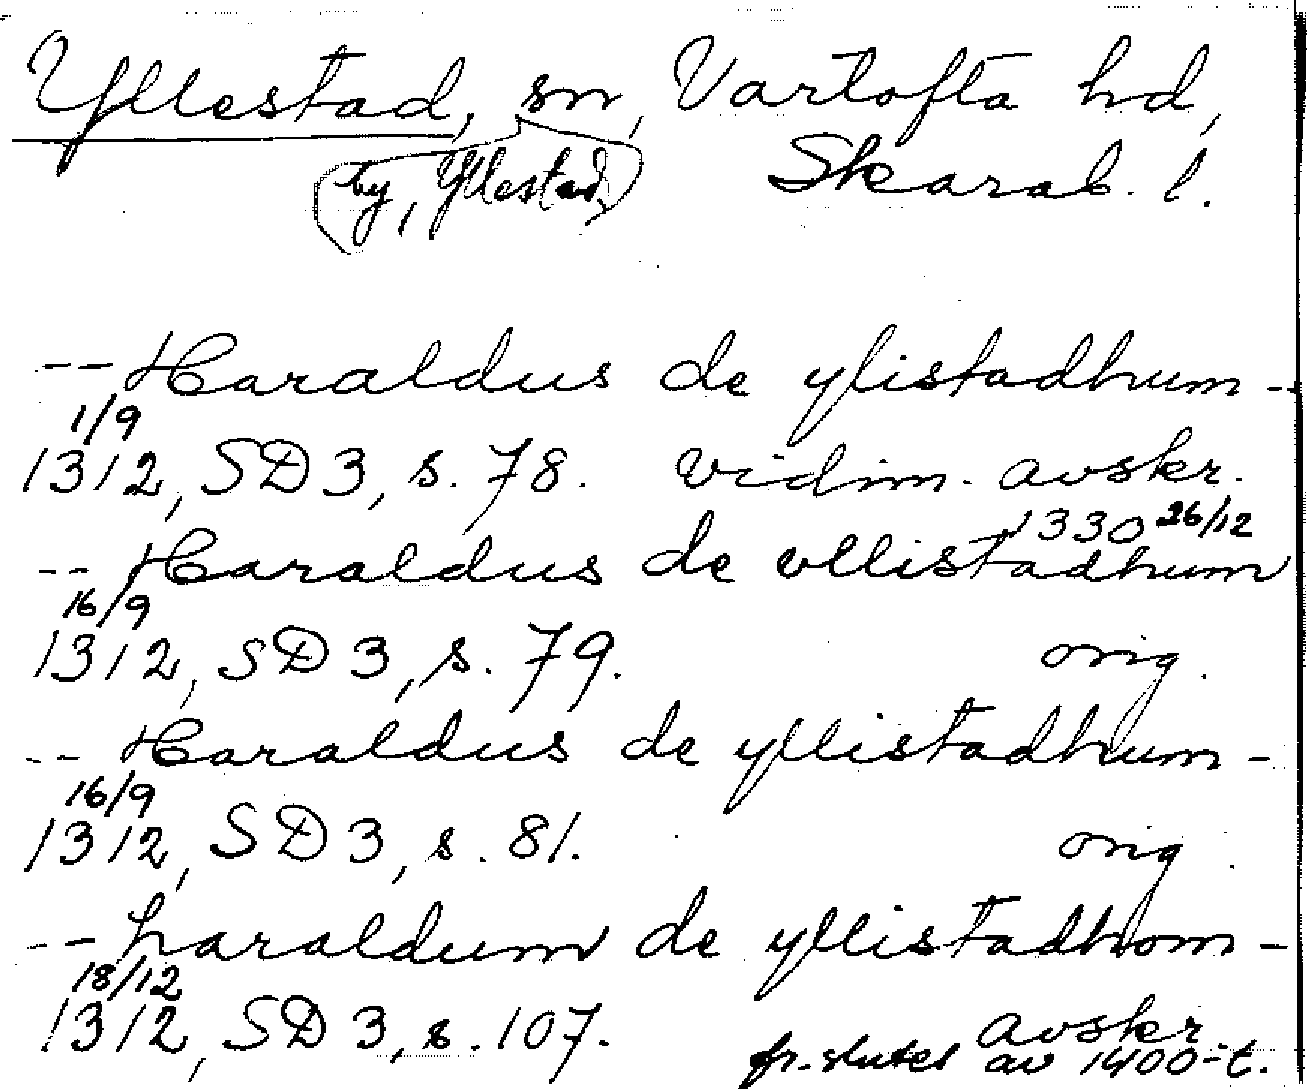 Yllestad, sn, Vartofta hd,
(by, Yllestad) Skarab. l.
-- Haraldus de ylistadhum --
1/9
1312, SD 3, s. 78. vidim. avskr.
1330 26/12
-- Haraldus de vllistadhum
16/9
1312, SD 3, s. 79. orig.
-- Haraldus de yllistadhum -
16/9
1312, SD 3, s. 81. orig.
-- haraldum de yllistadhom -
18/12
1312, SD 3, s. 107. avskr.
fr. slutet av 1400-t.